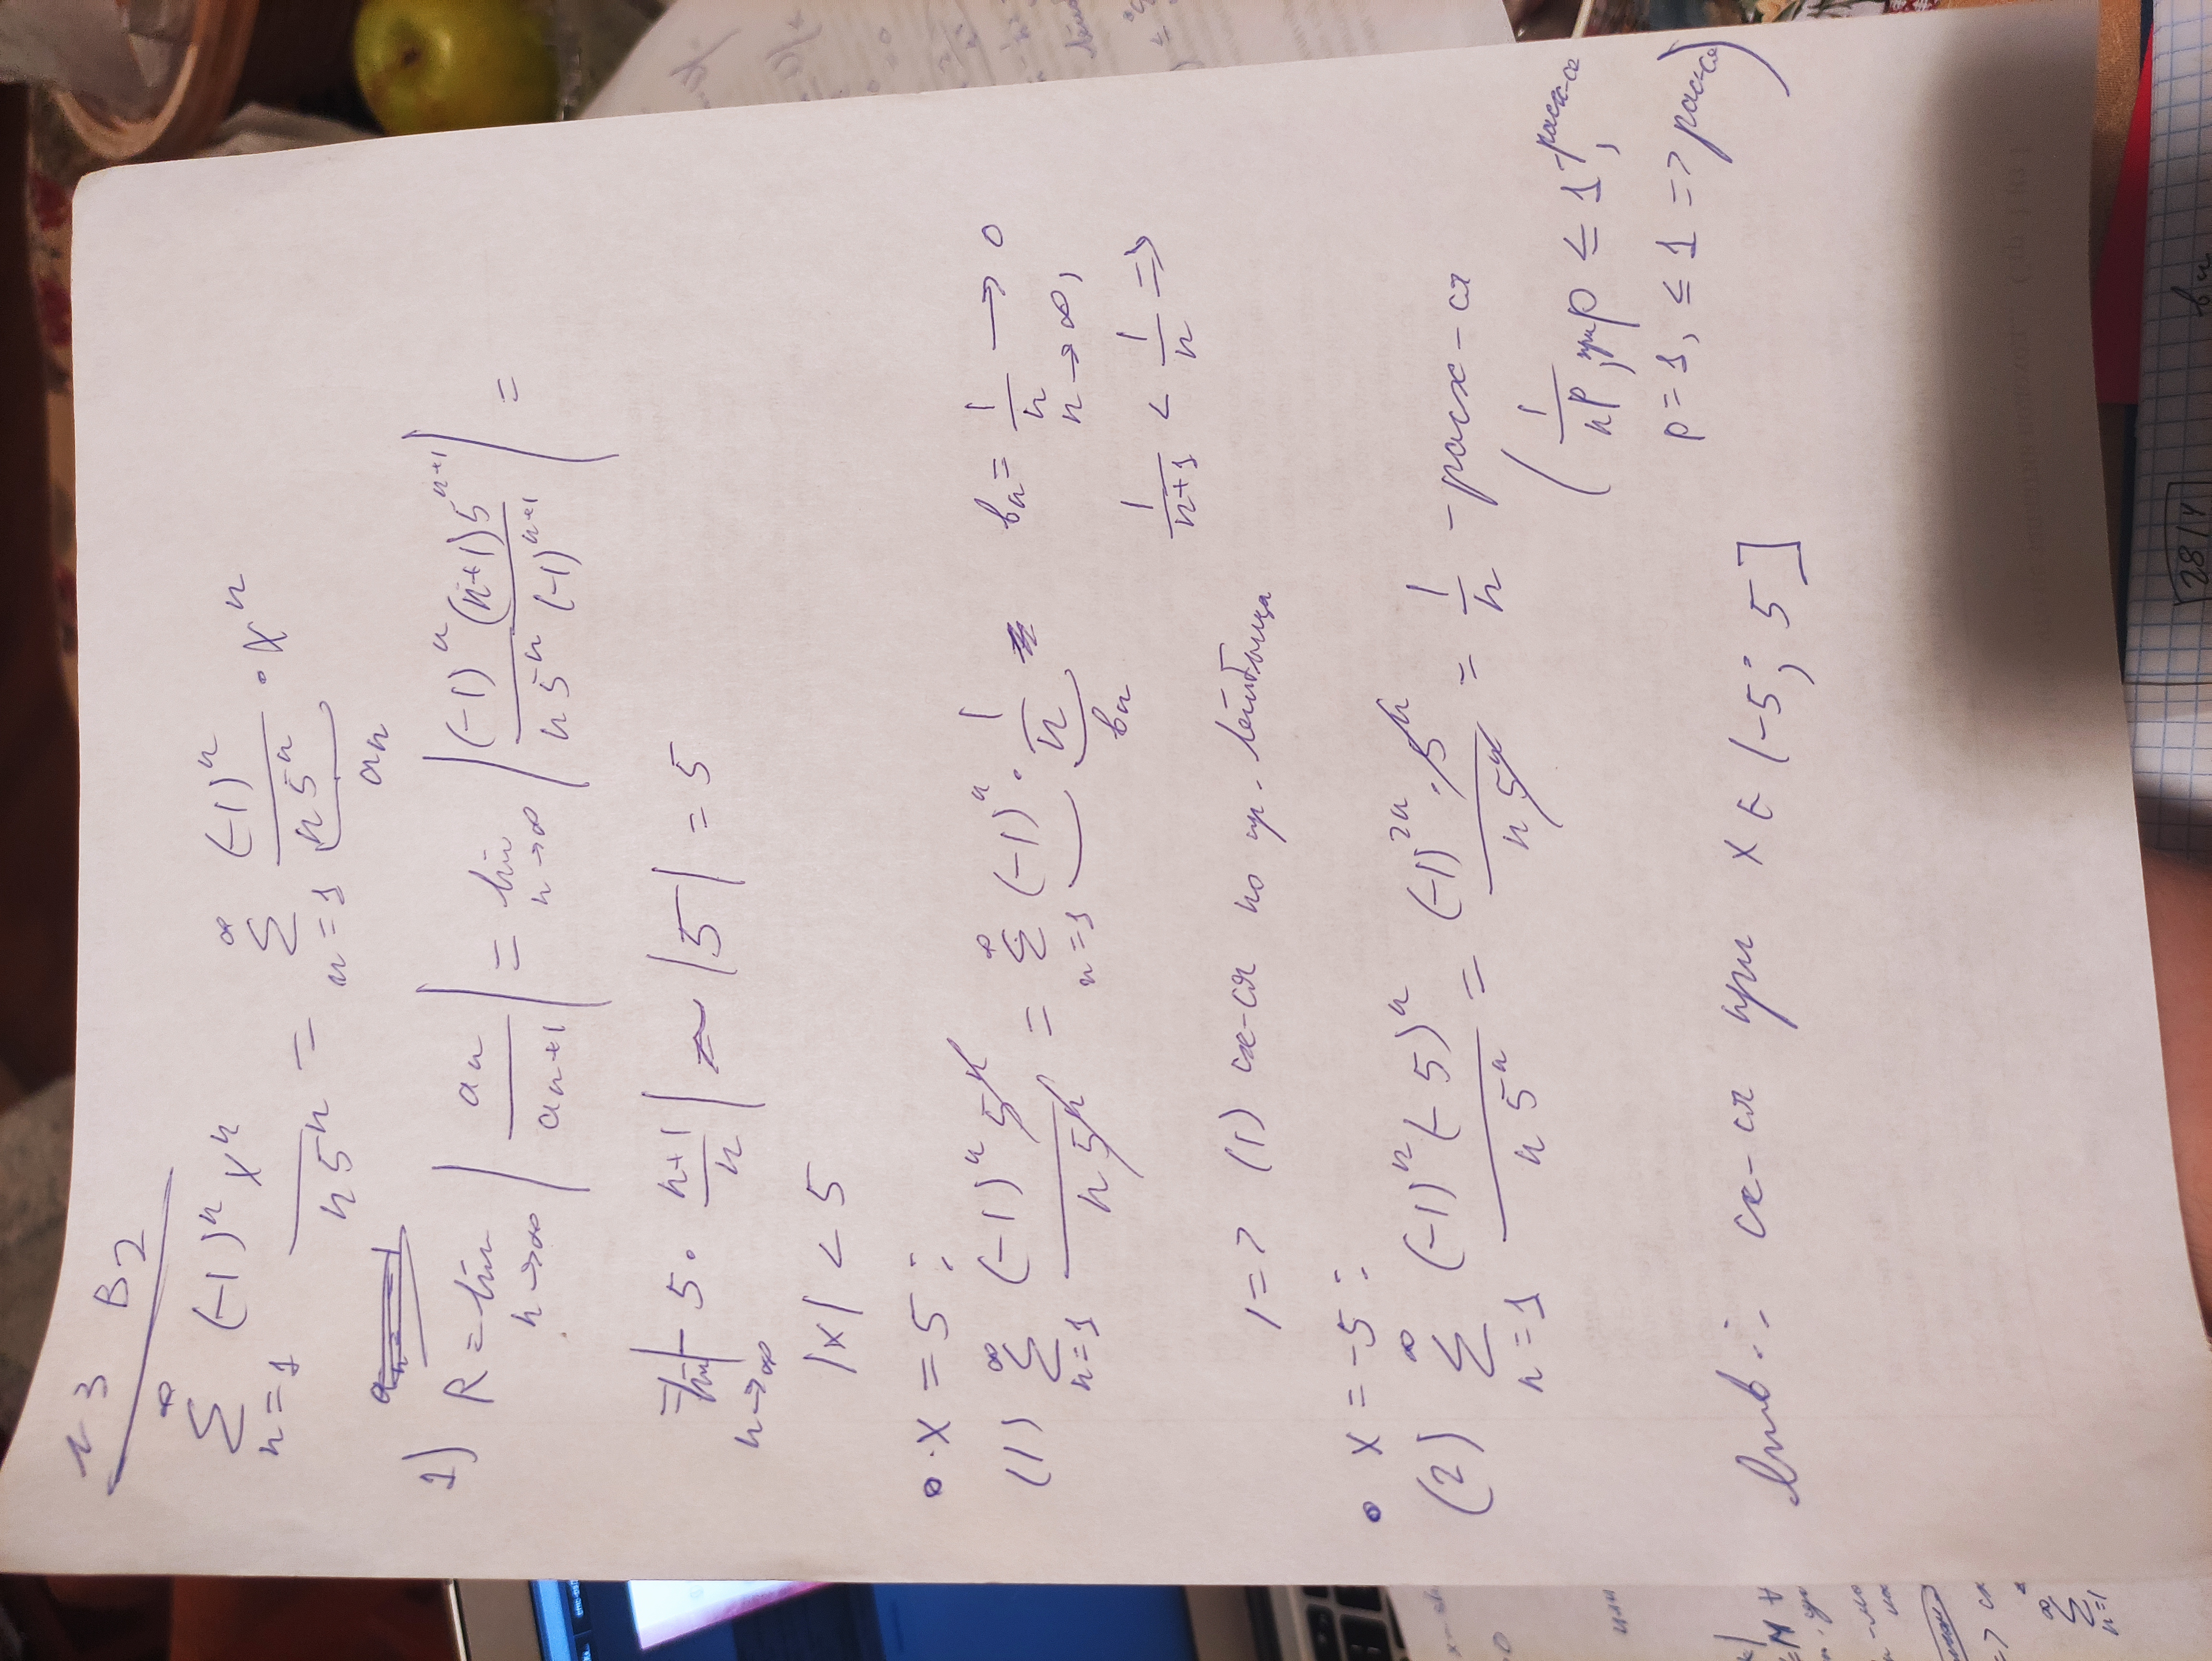 N3 B2
∑_{n=1}^{∞} (-1)^n x^n / n5^n = ∑_{n=1}^{∞} (-1)^n / n5^n · x^n
an
1) R = lim_{n→∞} |an / an+1| = lim_{n→∞} |(-1)^n (n+1)5^{n+1} / n5^n (-1)^{n+1}| =
= lim_{n→∞} |5 · n+1 / n| ~ |5| = 5
|x| < 5
• x = 5:
(1) ∑_{n=1}^{∞} (-1)^n 5^n / n5^n = ∑_{n=1}^{∞} (-1)^n · 1/n bn = 1/n → 0
bn n→∞,
1/n+1 < 1/n =>
1=> (1) сх-ся по пр. Лейбница
• x = -5:
(2) ∑_{n=1}^{∞} (-1)^n (-5)^n / n5^n = (-1)^{2n} · 5^n / n5^n = 1/n - расх-ся
(1/n^p, при p ≤ 1, -расх-ся
p = 1, ≤ 1 => расх-ся)
сх-ся при x ∈ (-5; 5]
28/V